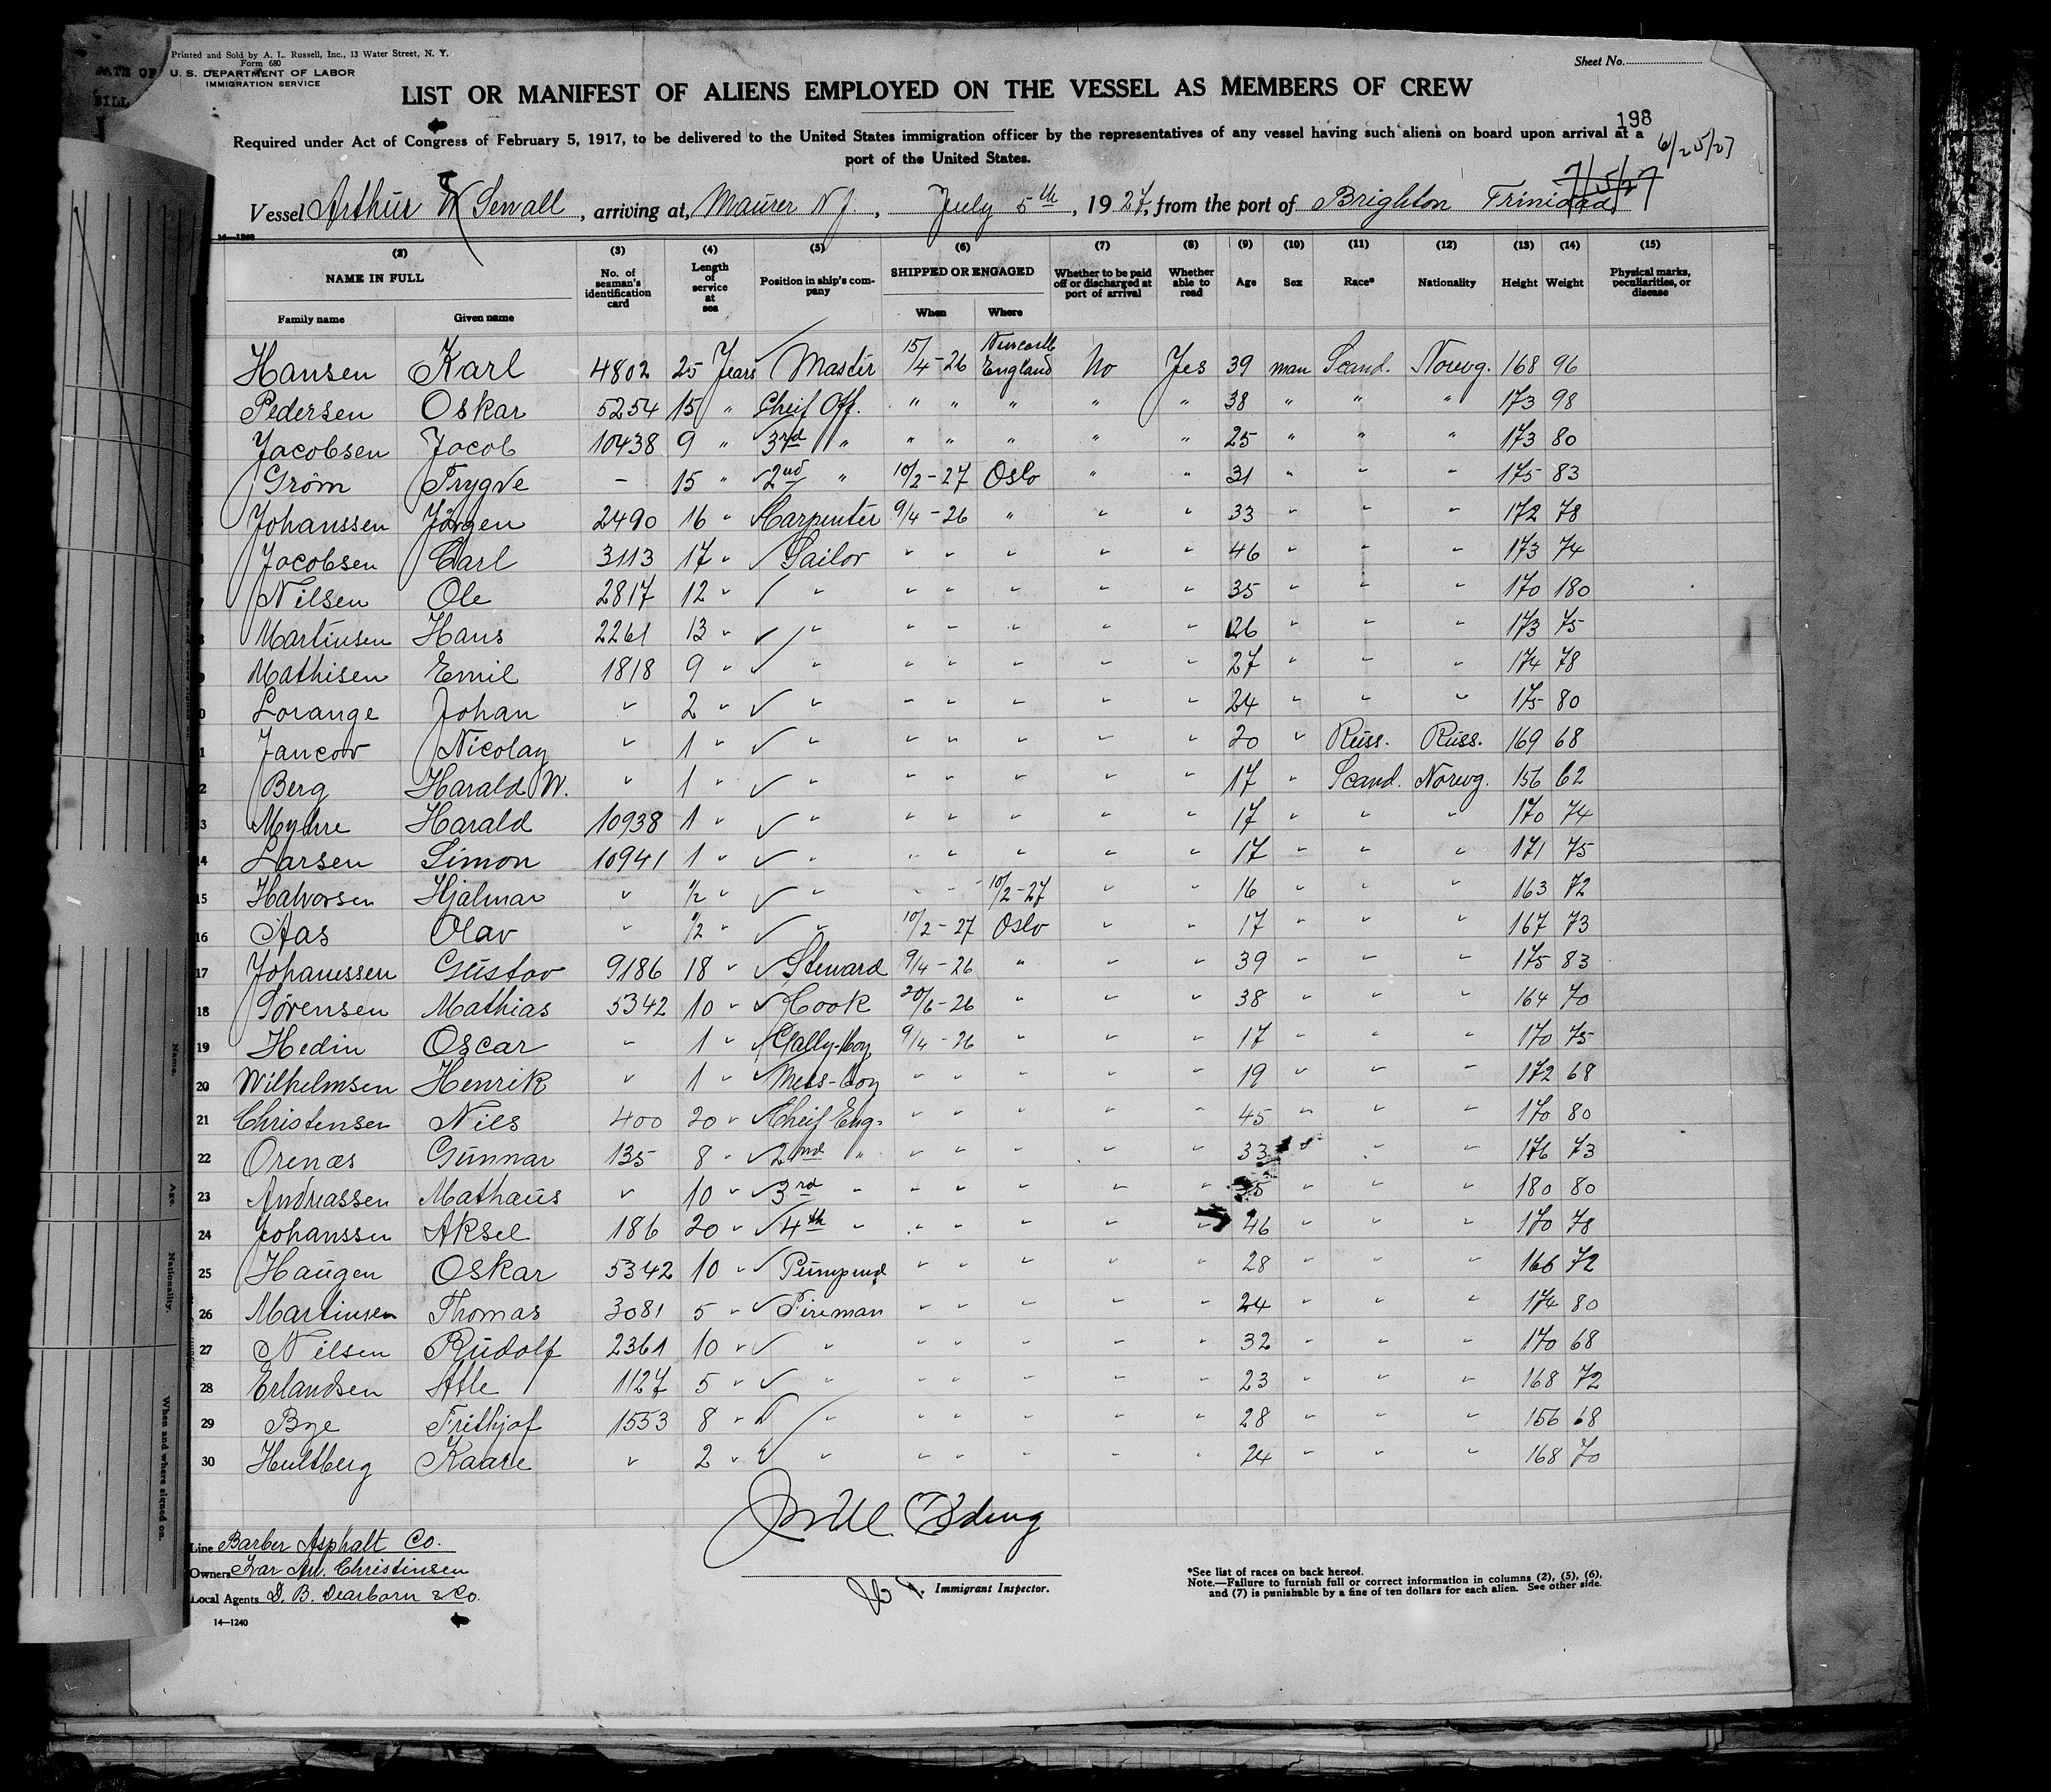 Printed and Sold by A. L. Russell, Inc., 13 Water Street, N. Y.
Form 680
U. S. DEPARTMENT OF LABOR
IMMIGRATION SERVICE
Sheet No.
LIST OR MANIFEST OF ALIENS EMPLOYED ON THE VESSEL AS MEMBERS OF CREW
198
Required under Act of Congress of February 5, 1917, to be delivered to the United States immigration officer by the representatives of any vessel having such aliens on board upon arrival at a
port of the United States.
6/25/27
7/5/27
Vessel Arthur Sewall, arriving at, Maurer NJ, July 5th, 1927, from the port of Brighton Trinidad
14—1240
(2) (3) (4) (5) (6) (7) (8) (9) (10) (11) (12) (13) (14) (15)
NAME IN FULL Family name Given name No. of seaman's identification card Length of service at sea Position in ship's company SHIPPED OR ENGAGED When Where Whether to be paid off or discharged at port of arrival Whether able to read Age Sex Race* Nationality Height Weight Physical marks, peculiarities, or disease
Hansen Karl 4802 25 Years Master 15/4-26 Newcastle England No Yes 39 man Scand. Norwg. 168 96
Pedersen Oskar 5254 15 " Cheif Off. " " " " " 38 " " " 173 98
Jacobsen Jacob 10438 9 " 3rd " " " " " " 25 " " " 173 80
Grøm Trygve - 15 " 2nd " 10/2-27 Oslo " " 31 " " " 175 83
Johanssen Jörgen 2490 16 " Carpenter 9/4-26 " " " 33 " " " 172 78
Jacobsen Carl 3113 17 " Sailor " " " " " 46 " " " 173 74
7 Nilsen Ole 2817 12 " " " " " " " 35 " " " 170 180
8 Martinsen Hans 2261 13 " " " " " " " 26 " " " 173 75
9 Mathisen Emil 1818 9 " " " " " " " 27 " " " 174 78
0 Lorange Johan " 2 " " " " " " " 24 " " " 175 80
1 Jancov Nicolay " 1 " " " " " " " 20 " Russ. Russ. 169 68
2 Berg Harald W. " 1 " " " " " " " 17 " Scand. Norwg. 156 62
3 Myhre Harald 10938 1 " " " " " " " 17 " " " 170 74
14 Larsen Simon 10941 1 " " " " " " " 17 " " " 171 75
15 Halvorsen Hjalmar " 1/2 " " " " 10/2-27 " " 16 " " " 163 72
16 Aas Olav " 1/2 " " 10/2-27 Oslo " " 17 " " " 167 73
17 Johanssen Gustav 9186 18 " Steward 9/4-26 " " " 39 " " " 175 83
18 Sørensen Mathias 5342 10 " Cook 20/6-26 " " " 38 " " " 164 70
19 Hedin Oscar " 1 " Gally-boy 9/4-26 " " " 17 " " " 170 75
20 Wilhelmsen Henrik " 1 " Mess-boy " " " " " 19 " " " 172 68
21 Christensen Nils 400 20 " Cheif Eng. " " " " " 45 " " " 170 80
22 Orenæs Gunnar 135 8 " 2nd " " " " " " 33 " " " 176 73
23 Andreassen Mathaus " 10 " 3rd " " " " " " 35 " " " 180 80
24 Johanssen Aksel 186 20 " 4th " " " " " " 46 " " " 170 78
25 Haugen Oskar 5342 10 " " " " " " 28 " " " 166 72
26 Martinsen Thomas 3081 5 " Fireman " " " " " 24 " " " 174 80
27 Nilsen Rudolf 2361 10 " " " " " " " 32 " " " 170 68
28 Erlandsen Atle 1127 5 " " " " " " " 23 " " " 168 72
29 Bye Frithjof 1553 8 " " " " " " " 28 " " " 156 68
30 Hultberg Kaare " 2 " " " " " " 24 " " " 168 70
Line Barber Asphalt Co.
Owners Ivar An. Christensen
Local Agents D. B. Dearborn & Co.
Immigrant Inspector.
*See list of races on back hereof.
Note.—Failure to furnish full or correct information in columns (2), (5), (6),
and (7) is punishable by a fine of ten dollars for each alien. See other side.
14—1240
Name.
Age.
Nationality.
When and where signed on.